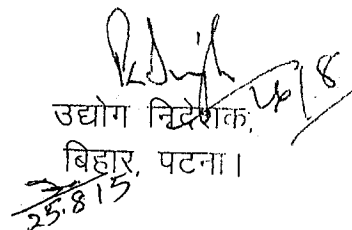 उद्योग निदेशक,
बिहार, पटना।
25.8.15